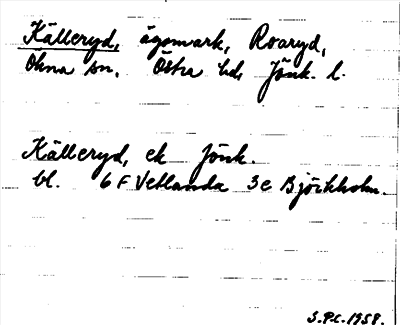 Källeryd, ägomark, Roaryd,
Ökna sn. Östra hd, Jönk. l.
Källeryd, ek Jönk.
bl. 6 F Vetlanda 3e Björkholm.
S.P.C. 1958.